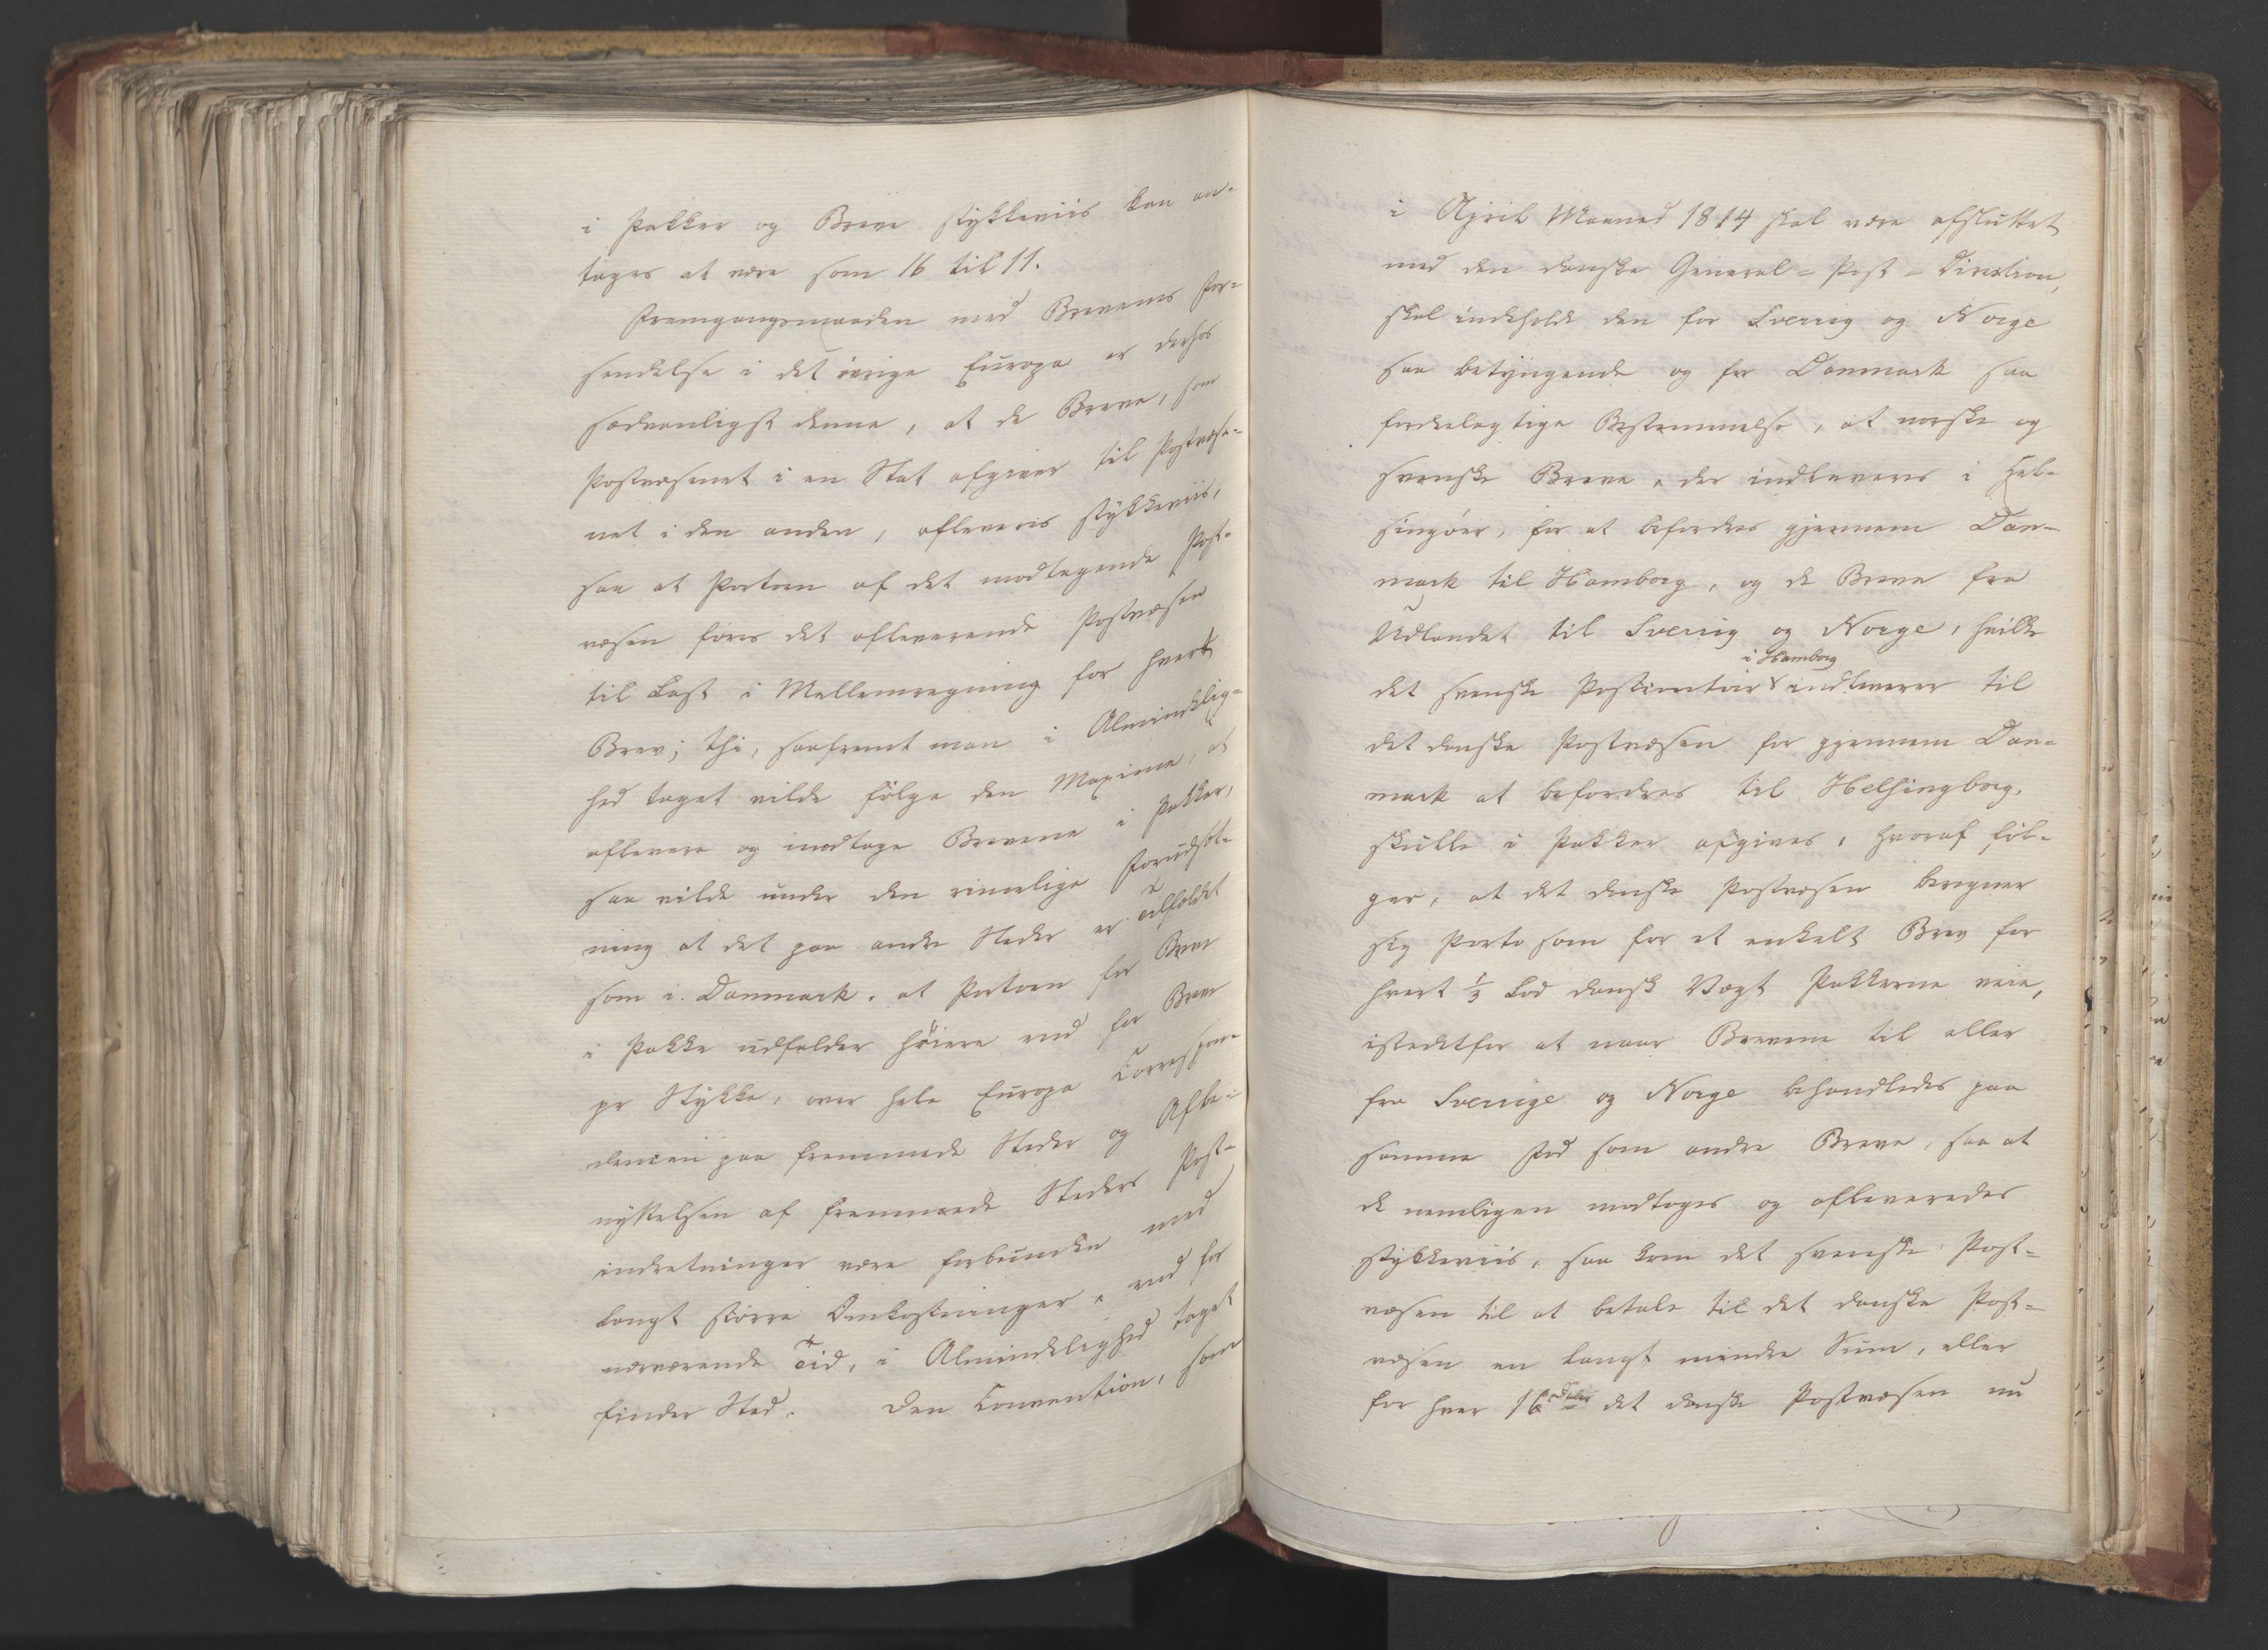 i Pakker og Breve stykkeviis kan an-
tages at være som 16 til 11.
Fremgangsmaaden med Brevenes For-
sendelse i det øvrige Europa er derhos
sædvanligst denne, at de Breve, som
Postvæsenet i en Stat afgiver til Postvæse-
net i den anden, afleveres stykkeviis,
saa at Portoen af det modtagende Post-
væsen føres det afleverende Postvæsen
til Last i Mellemregning for hvert
Brev; thi, saafremt man i Almindelig-
hed taget vilde følge den Maxime, at
aflevere og modtage Brevene i Pakker,
saa vilde under den rimelige Forudsæt-
ning at det paa andre Steder er Tilfældet
som i Danmark, at Portoen for Breve
i Pakke udfalder høiere end for Breve
pr Stykke, over hele Europa Correspon-
dencen paa fremmede Steder og Afbe-
nyttelsen af fremmede Steders Post-
indretninger være forbunden med
langt større Omkostninger, end for
nærværende Tid, i Almindelighed taget
finder Sted. Den Convention, som
i April Maaned 1814 skal være afsluttet
med den danske General-Post-Direction,
skal indeholde den for Sverrig og Norge
saa betyngende og for Danmark saa
fordeelagtige Bestemmelse, at norske og
svenske Breve, der indleveres i Hel-
singöer, for at befordres gjennem Dan-
mark til Hamborg, og de Breve fra
Udlandet til Sverrig og Norge, hvilke
i Hamborg
det svenske Postcontoir indleverer til
det danske Postvæsen for gjennem Dan-
mark at befordres til Helsingborg,
skulle i Pakker afgives, hvoraf føl-
ger, at det danske Postvæsen beregner
sig Porto som for et enkelt Brev for
hvert ½ Lod dansk Vægt Pakkerne veie,
istedetfor at naar Brevene til eller
fra Sverrige og Norge behandledes paa
samme Fod som andre Breve, saa at
de nemligen modtoges og afleveredes
stykkeviis, saa kom det svenske Post-
væsen til at betale til det danske Post-
væsen en langt mindre Sum, eller
for hver 16 det danske Postvæsen nu